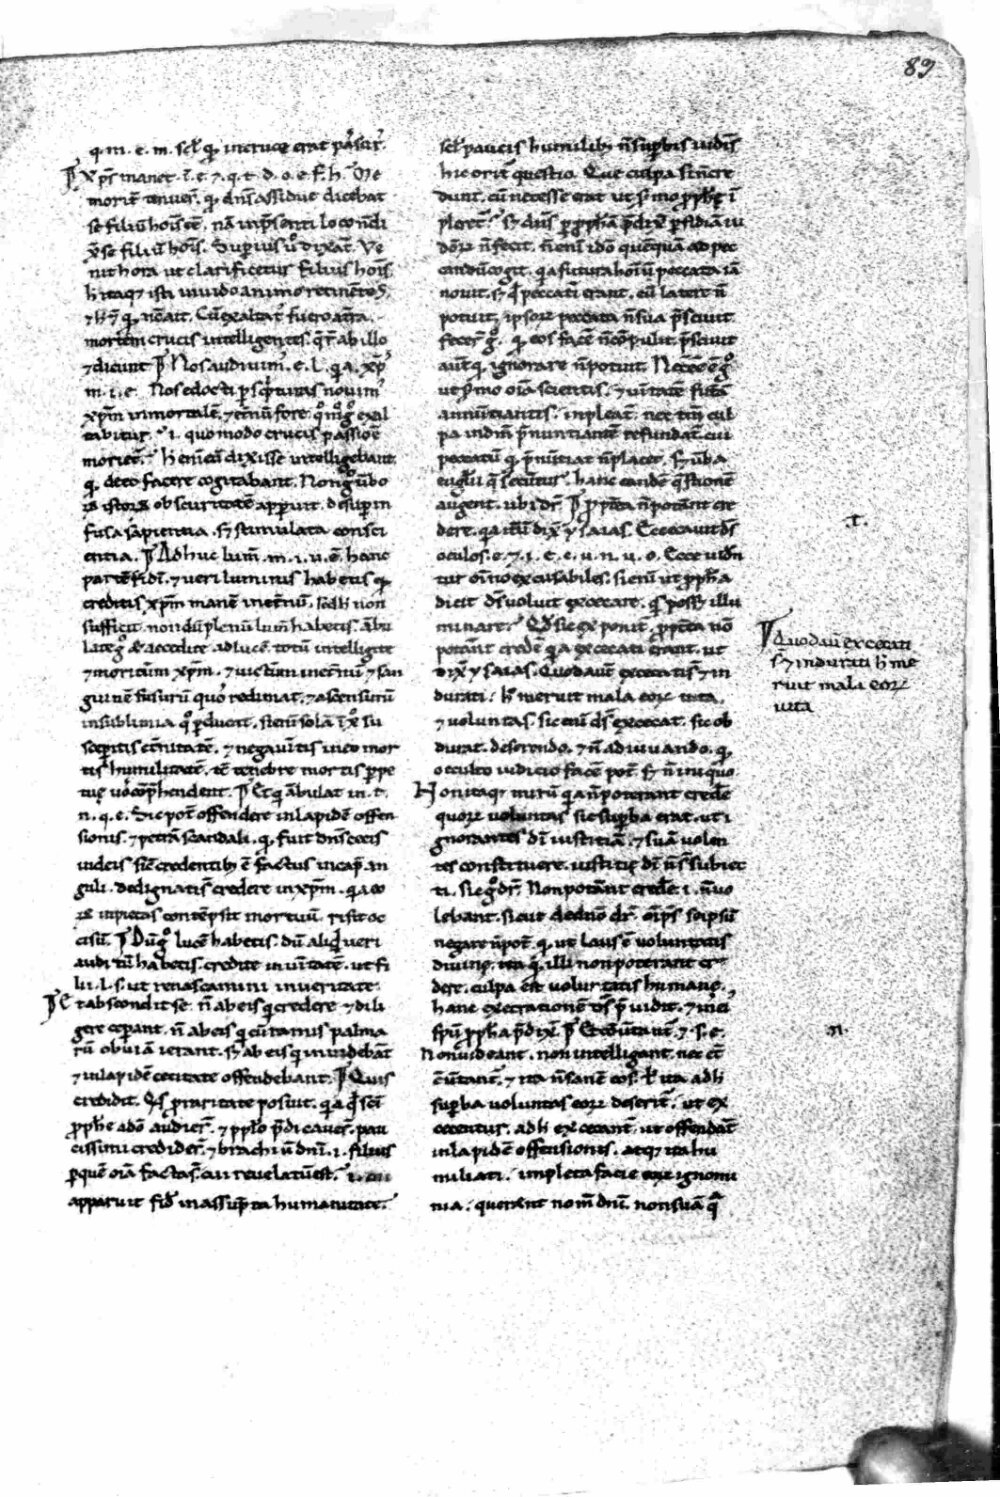 89
q. m. e. m. scil. q, in cruce erat passur.
xp̄s manet. ī. e. ⁊ q. t. d. o. e. f. h. Me
morit̄ tenuer̄. q, dn̄s assidue dicebat
se filiū hoīs eē. nā in p̄senti loco n̄ di
x̄ se filiū hoīs. Superius ū dixat̄. Ve
nit hora ut clarificetur filius hoīs
h̄ itaq; isti in uido animo retinētes.
⁊ h̄ q, n̄ ait. Cū exaltat̄ fuero a t̄ra.
mortem crucis intelligentes. q̄r̄ ab illo
⁊ dicunt Nos audiuim̄. e. l. q a. xp̄s
m. i. e. Nos edocti p scripturas nouim̄
xp̄m inmortalē. ⁊ et̄nū fore. q̄m̄ g̊ exal
tabitur. i. quomodo crucis passionē
moriet̄. h̄ enī eū dixisse intelligebant
q, de eo facere cogitabant. Non g̊ ūbo
⁊ istoꝝ obscuritatē apperuit. desup in
fusa sapientia. s; stimulata consci
entia. Adhuc lum̄. m. i. u. ē. hanc
partē fidī. ⁊ ueri luminis habetis q,
creditis xp̄m manē in et̄nū. sed h̄ non
sufficit. nondū plenū lum̄ habetis. ābu
late g̊ & accedite ad lucē. totū intelligite
⁊ moritūm xp̄m. ⁊ uicturū in et̄nū ⁊ san
guinē fusurū quo redimat. ⁊ ascensurū
in sublimia q̊ pducat. si enī solā ī x̊ su
sceperitis et̄nitatē. ⁊ negauītis in eo mor
tis humilitatē. tc̄ tenebre mortis ppe
tue uos cōp̄hendent. Et qi ābulat in. t.
n. q. e. Sic pot̄ offendere in lapidē offen
sionis. ⁊ petrā scandali. q, fuit dn̄s cecis
iudeis sic̄ credentib; ē factus in cap̄ an
guli. dedignatis credere in xp̄m. q a eo
ꝝ inpietas contēpsit mortuū. risit oc
cisū. Dū g̊ lucē habetis. dū aliqd ueri
auditū habetis. credite in uītatē. ut fi
lii. l. s. ut renascamini in ueritate.
Et abscondit se. n̄ ab eis q credere ⁊ dili
gere ceperant. n̄ ab eis q cū ramis palma
rū obuiā ierant. s; ab eis q inuidebāt
⁊ in lapidē cecitate offendebant. Quis
credidit. Qs p raritate posuit. q a qd sc̄i
pphe a dō audier̄. ⁊ pplo p̄dicauer̄. pau
cissimi credider̄. ⁊ brachiū dn̄i. i. filius
p quē oīa facta s̄. cui reuelatū est. i. cui
apparuit fid̄ in assūpta humanitate.
scil. paucis humilib; n̄ supbis iudeīs
hic orit̄ questio. Que culpa
dunt. cū necesse erat ut sermo pph̄e ī
pleret̄. S; dn̄s p pph̄ā p̄dix̄ pfidiā iu
deoꝝ n̄ fecit. n̄ enī ideo quēquā ad pec
candū cogit. q a futura hoīū peccata iā
nouit. s; qd peccatī erant. eū latere n̄
potuit. ipsoꝝ peccata n̄ sua p̄sciuit
fecer̄ g̊. q, eos facē n̄ cōpulit p̄sciuit
aut̄ q, ignorare n̄ potuit.
ut sermo oīa scientis. ⁊ uītatē futā
annūtiantis. inpleat̄. nec tm̄ cul
pa in dm̄ p̄nuntiantē refundat̄. cui
peccatū q, p̄nūtiat n̄ placet. S; ūba
euglii q̄ secuntur. hanc eandē q̄stionē
augent. ubi dr̄. Ppt̄ea n̄ potant̄ cre
dere. q a itū dix̄ ysaias. Excecauit d̄s
oculos. e. ⁊. i. e. c. u. n. u. o. Ecce uidn̄
tur oīno excusabiles. si enī ut ppha
dicit ds̄ uoluit excecare. qs possz illu
minare. Qd sic exponit. ppt̄ea nō
potant̄ credē q a excecati erant. ut
dix̄ ysaias. Quod aut̄ excecati s̄t ⁊ in
durati: h̊ meruit mala eoꝝ uita.
⁊ uoluntas. sic enī ds̄ excecat. sic ob
durat. deserendo. ⁊ n̄ adiuuando. q,
occulto iudicio facē pot̄. s; n̄ iniquo
Non itaq; mirū q a n̄ poterant credē
quoꝝ uoluntas sic supba erat. ut i
gnorantes dī iustitiā. ⁊ suā uolen
tes constituere. iustitie dī n̄ s̄t subiec
ti. sic g̊ dr̄. Non potant̄ credē. i. n̄ uo
lebant. sicut de dn̄o dr̄. oīps̄ se ipsū
negare n̄ pot̄. q, ut laus ē uoluntatis
diuine. ita q, illi non poterant cre
dere. culpa est uoluntatis humane.
hanc excecationē ds̄ p̄uidit. ⁊
spū ppha p̄dix̄.
Non uideant. non intelligant. nec
cūtant̄. ⁊ ita n̄ sanē eos. ita adh̄
supba uoluntas eoꝝ deserit̄. ut ex
cecentur. adh̄ excecant̄. ut offendat̄
in lapidē offensionis. atq; ita hu
miliati. impleta facie eoꝝ ignomi
nia. querent nom̄ dn̄i. non suā q̄
.r.
Quod aut̄ excecati
s̄t ⁊ indurati h̄ me
ruit mala eoꝝ
uita
.n.